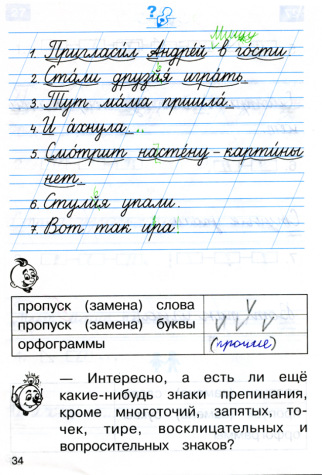 ?
Мишу
1. Пригласи́л Андре́й в го́сти.
2. Ста́ли друзия́ игра́ть.
3. Тут ма́ма пришла́.
4. И а́хнула...
5. Смо́трит на стéну – карти́ны
нет.
6. Стулия упали.
7. Вот так ира!
пропуск (замена) слова V
пропуск (замена) буквы V V V
орфограммы (прочие)
— Интересно, а есть ли ещё
какие-нибудь знаки препинания,
кроме многоточий, запятых, то-
чек, тире, восклицательных и
вопросительных знаков?
34